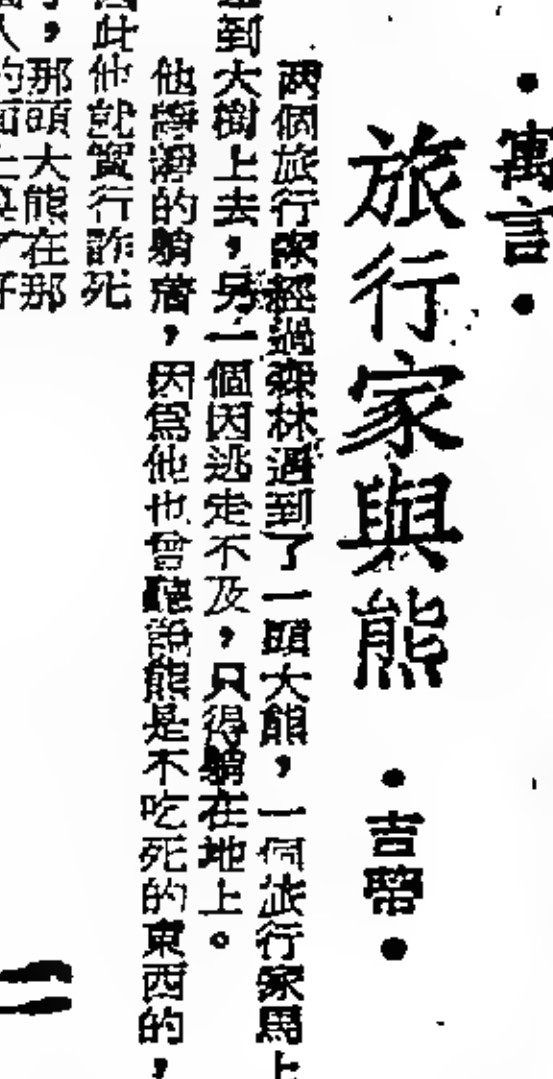 •寓言•
旅行家與熊
•吉•
两個旅行家經過森林遇到了一頭大熊，一個旅行家馬上
到大樹上去，另一個因逃走不及，只得躺在地上。
他靜靜的躺着，因為他也曾聽說熊是不吃死的東西的，
因此他就實行詐死
，那頭大熊在那
人的面上臭了好